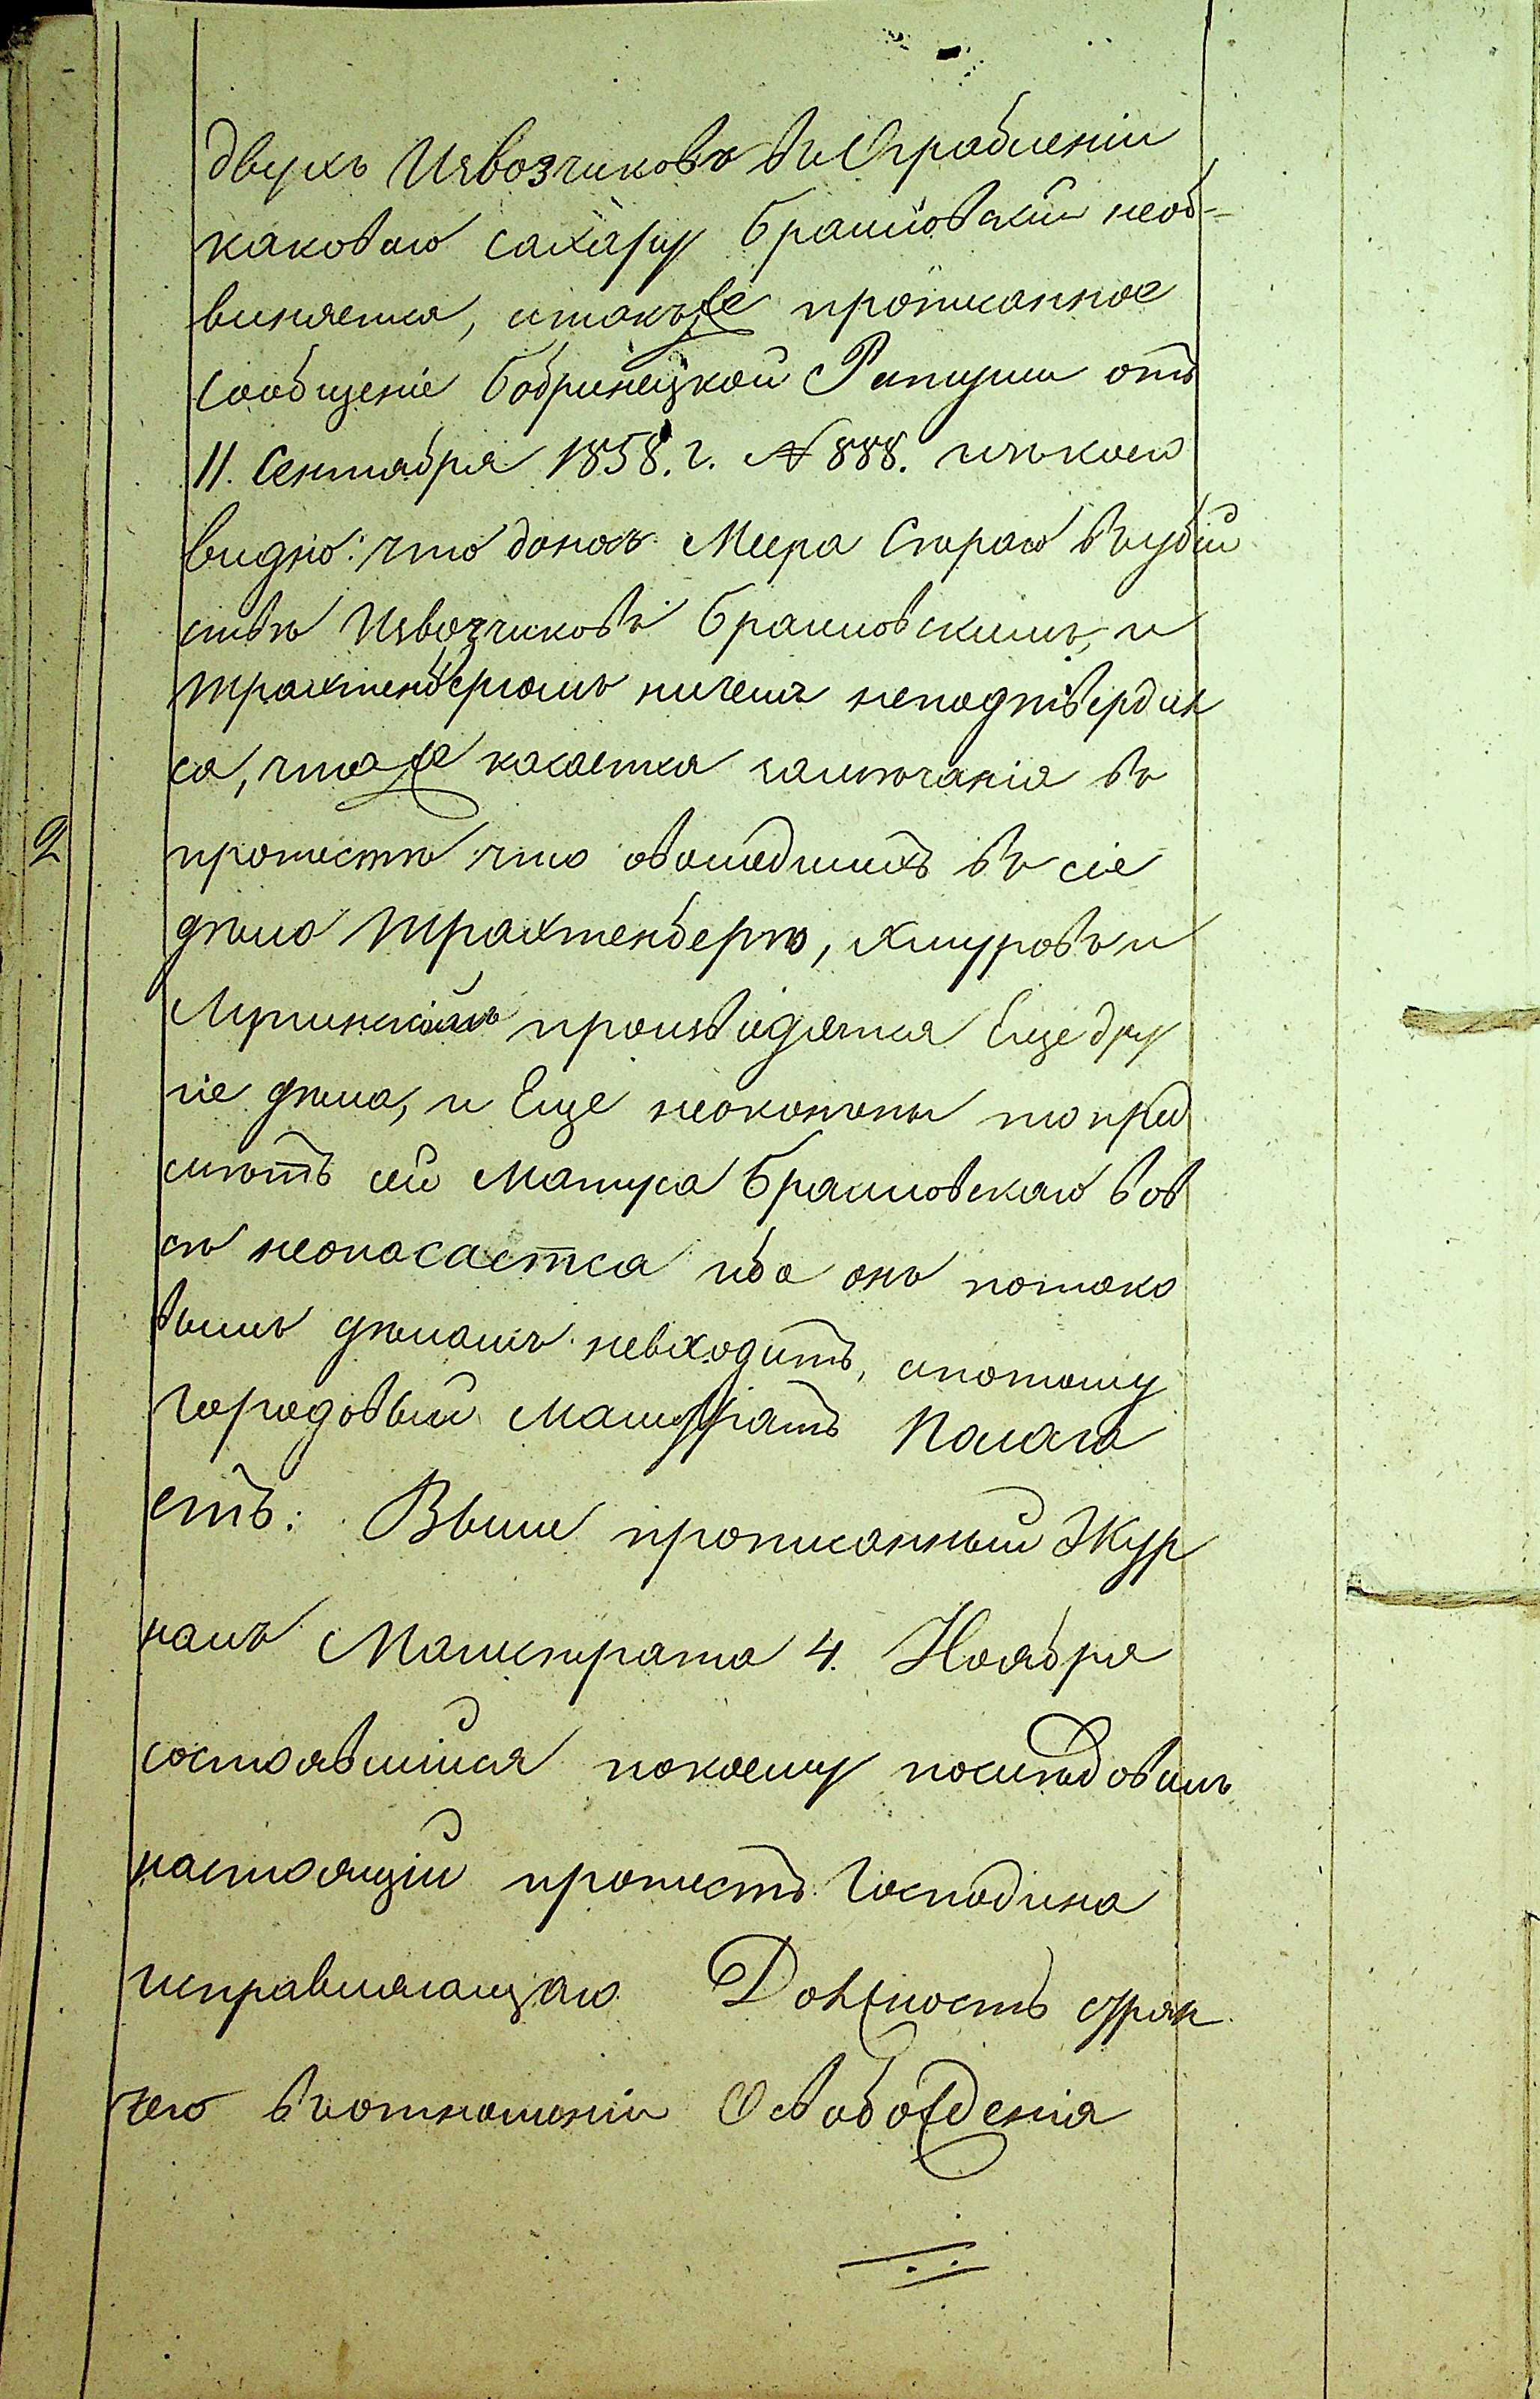 двухъ Извозчиковъ въ Ограбленіи
каковаго сахару Браиловскій необ-
виняется, итакъже прописанное
сообщеніе Бобринецкой Ратуши отъ
11. Сентября 1858. г. № 888. изъ коего
видно: что доносъ Меера Стараго въ убій
ствѣ Извозчиковъ Браиловскимъ, и
Трахтенбергомъ ничемъ неподтвердил
ся, чтоже касается замѣчанія въ
протестѣ что овошедшихъ въ сіе
дѣло Трахтенберго, Хмуровъ и
производятся Еще дру
гіе дѣла, и Еще неокончены то пред
мѣтъ сей Матуса Браиловскаго вов
се некасается ибо онъ потако
вымъ дѣламъ невходитъ, ипотому
городовый Магистратъ Полага
етъ: Выше прописанный Жур
налъ Магистрата 4. Ноября
состоявшійся покоему последовалъ
настоящій протестъ Господина
исправляющаго Должность стряп
чего въ отношеніи Освобожденія
2